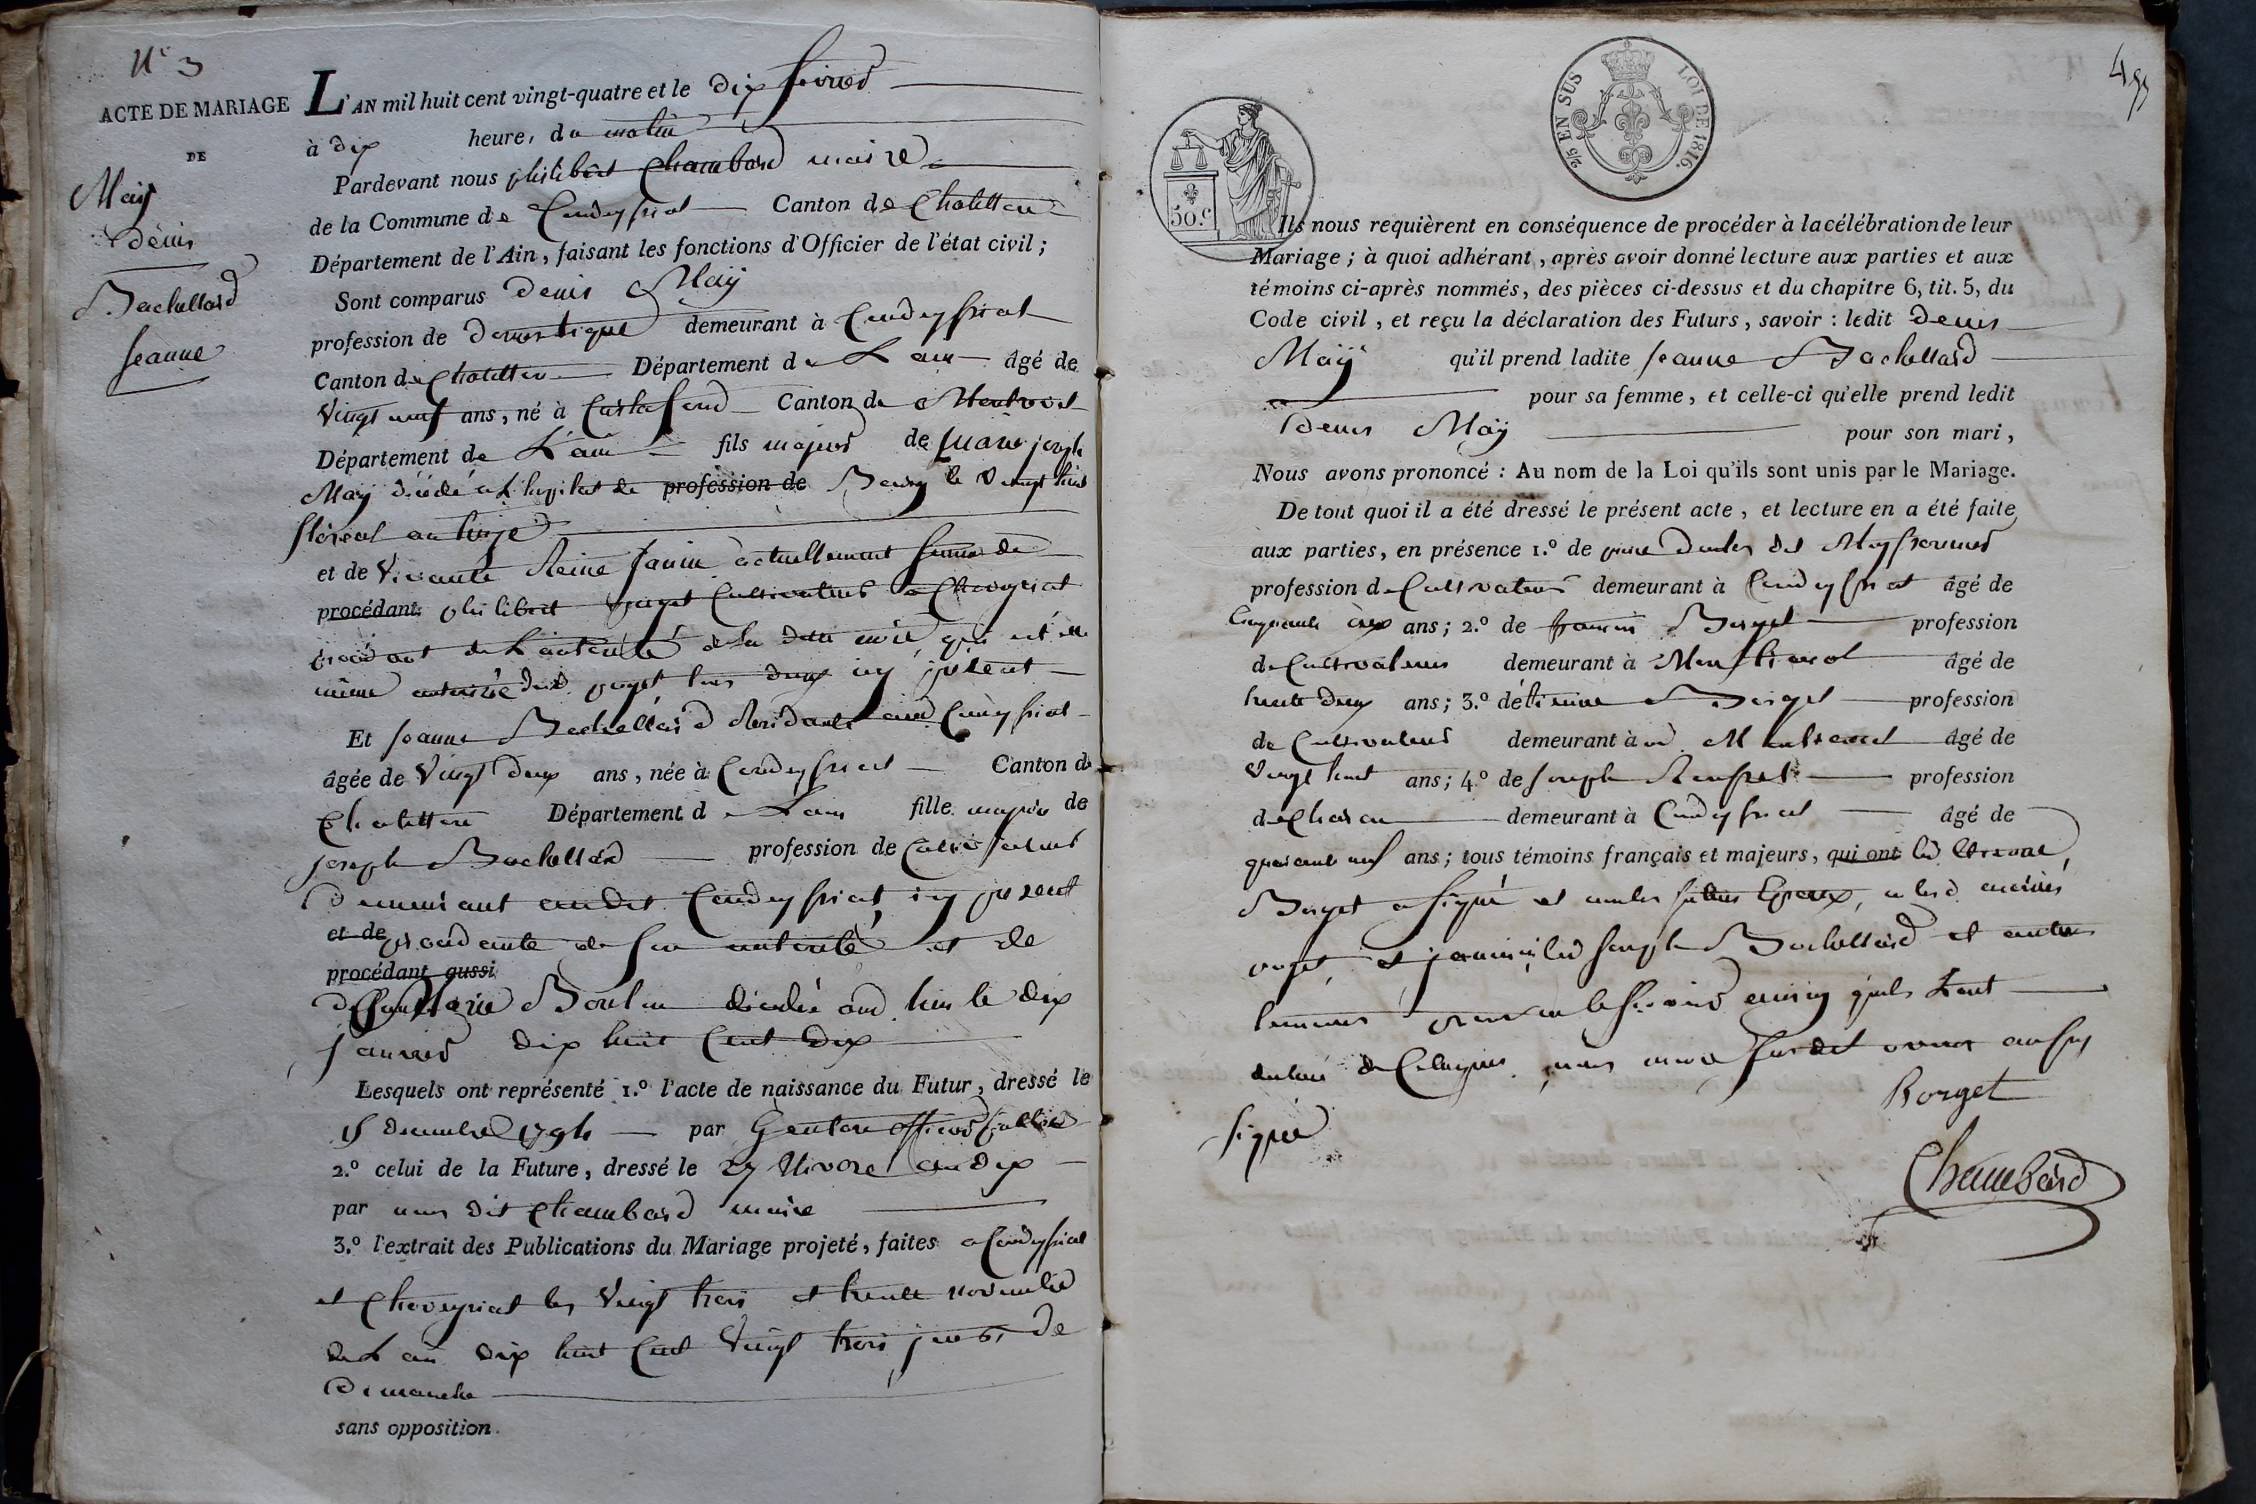 N° 3
ACTE DE MARIAGE
DE
Maÿ
Denis
Bachellard
Jeanne
L'AN mil huit cent vingt-quatre et le dix fevrier
à dix heure, du matin
Pardevant nous philibert Chambard maire
de la Commune de Condeyssiat Canton de Chatillon
Département de l'Ain, faisant les fonctions d'Officier de l'état civil;
Sont comparus Denis Maÿ
profession de Domestique demeurant à Condeyssiat
Canton de Chatillon Département de L'ain âgé de
Vingt neuf ans, né à Curtafond Canton de Montrevel
Département de L'ain fils majeur de joseph
Maÿ décédé a L'hopital de profession de Bourg le Vingt huit
floreal an treize
et de Vivante Reine Janin actuellement femme de
procédant philibert puget Cultivateur a Chaveyriat
procedant de L'autorité de la dite mere, qui est elle
même autorisée dud. puget tous deux icy present
Et Jeanne Bachellard Residante aud. Condeyssiat
âgée de Vingt deux ans, née à Condeyssiat Canton de
Chatillon Département de L'ain fille majeure de
joseph Bachellard profession de Cultivateur
Demeurant audit Condeyssiat, icy present
et de procedante de son autorité et de
procédant aussi
Marie Boulon décédée aud. lieu le dix
janvier dix huit Cent dix
Lesquels ont représenté 1.° l'acte de naissance du Futur, dressé le
15 decembre 1794 par officier public
2.° celui de la Future, dressé le 27 Nivose an dix
par nous dit Chambard maire
3.° l'extrait des Publications du Mariage projeté, faites a Condeyssiat
et Chaveyriat les Vingt trois et trente novembre
de L'an dix huit Cent Vingt trois jours de
Dimanche
sans opposition.
2/5 EN SUS
LOI DE 1816.
50.c
Ils nous requièrent en conséquence de procéder à la célébration de leur
Mariage; à quoi adhérant, après avoir donné lecture aux parties et aux
témoins ci-après nommés, des pièces ci-dessus et du chapitre 6, tit. 5, du
Code civil, et reçu la déclaration des Futurs, savoir: ledit Denis
Maÿ qu'il prend ladite Jeanne Bachellard
pour sa femme, et celle-ci qu'elle prend ledit
Denis Maÿ pour son mari,
Nous avons prononcé: Au nom de la Loi qu'ils sont unis par le Mariage.
De tout quoi il a été dressé le présent acte, et lecture en a été faite
aux parties, en présence 1.° de
profession de Cultivateur demeurant à Condeyssiat âgé de
Cinquante ans; 2.° de francois Borget profession
de Cultivateur demeurant à Montrevel âgé de
trente deux ans; 3.° d'étienne Borget profession
de Cultivateur demeurant à ud. Montrevel âgé de
Vingt huit ans; 4.° de Joseph profession
de Charon demeurant à Condeyssiat âgé de
quarante neuf ans; tous témoins français et majeurs, qui ont
Borget a signé et non les futurs Epoux,
puget, et janin, led. Joseph Bachellard et autres
temoins pour ne le savoir ainsy qu'ils l'ont
declaré de Ce requis, nous maire susdit avons aussy
signé
Borget
Chambard